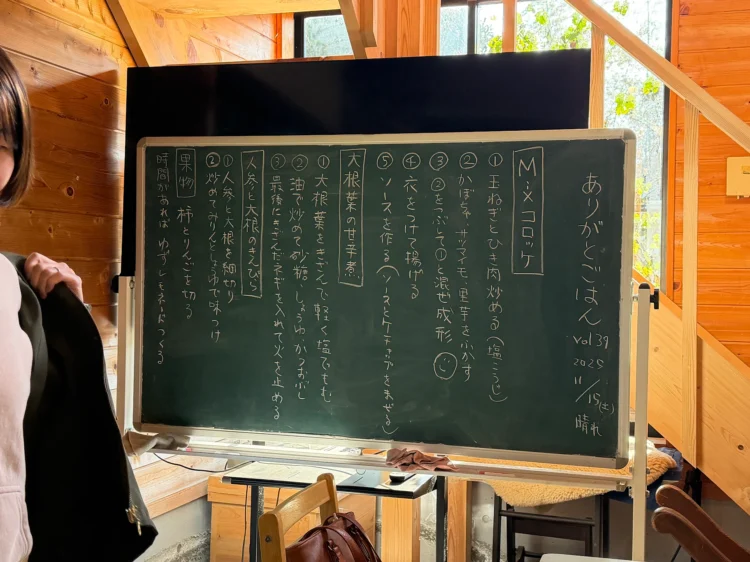 ありがとごはん vol 39 2025 11/15(土) 晴れ
Mixコロッケ
① 玉ねぎとひき肉炒める(塩こうじ)
② かぼちゃ サツマイモ、里芋をふかす
③ ②をつぶして①と混ぜ成形
④ 衣をつけて揚げる
⑤ ソースを作る(ソースとケチャップをまぜる)
大根葉の甘辛煮
① 大根葉をきざんで軽く塩でもむ
② 油で炒めて砂糖 しょうゆ かつおぶし
③ 最後にきざんだネギを入れて火を止める
人参と大根のきんぴら
① 人参と大根を細切り
② 炒めてみりんとしょうゆで味つけ
果物 柿とりんごを切る
時間があれば ゆずレモネードつくる